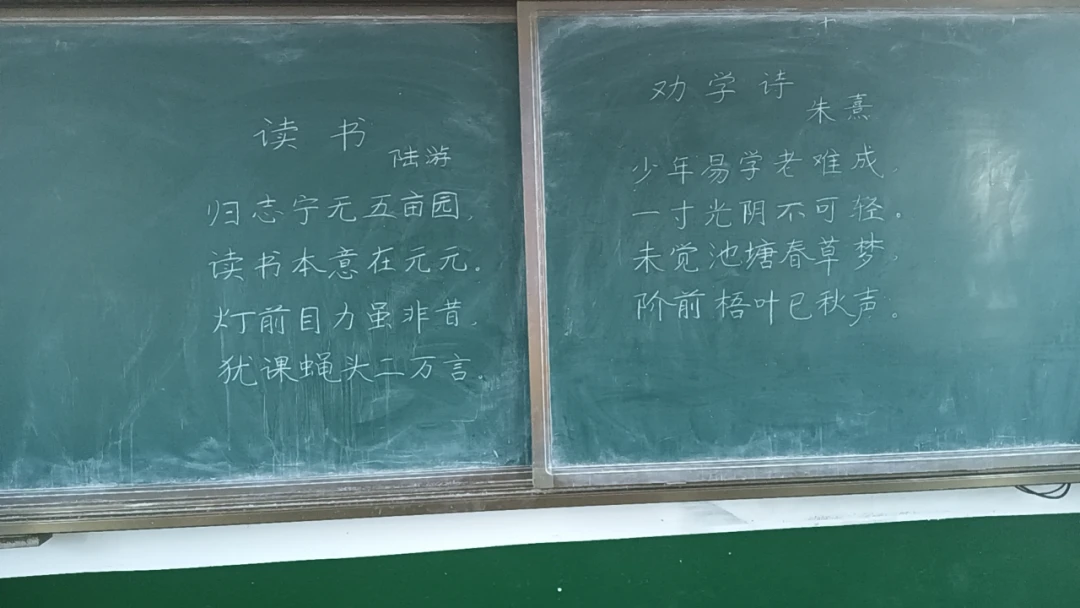 读书
陆游
归志宁无五亩园,
读书本意在元元。
灯前目力虽非昔,
犹课蝇头二万言。
劝学诗
朱熹
少年易学老难成,
一寸光阴不可轻。
未觉池塘春草梦,
阶前梧叶已秋声。